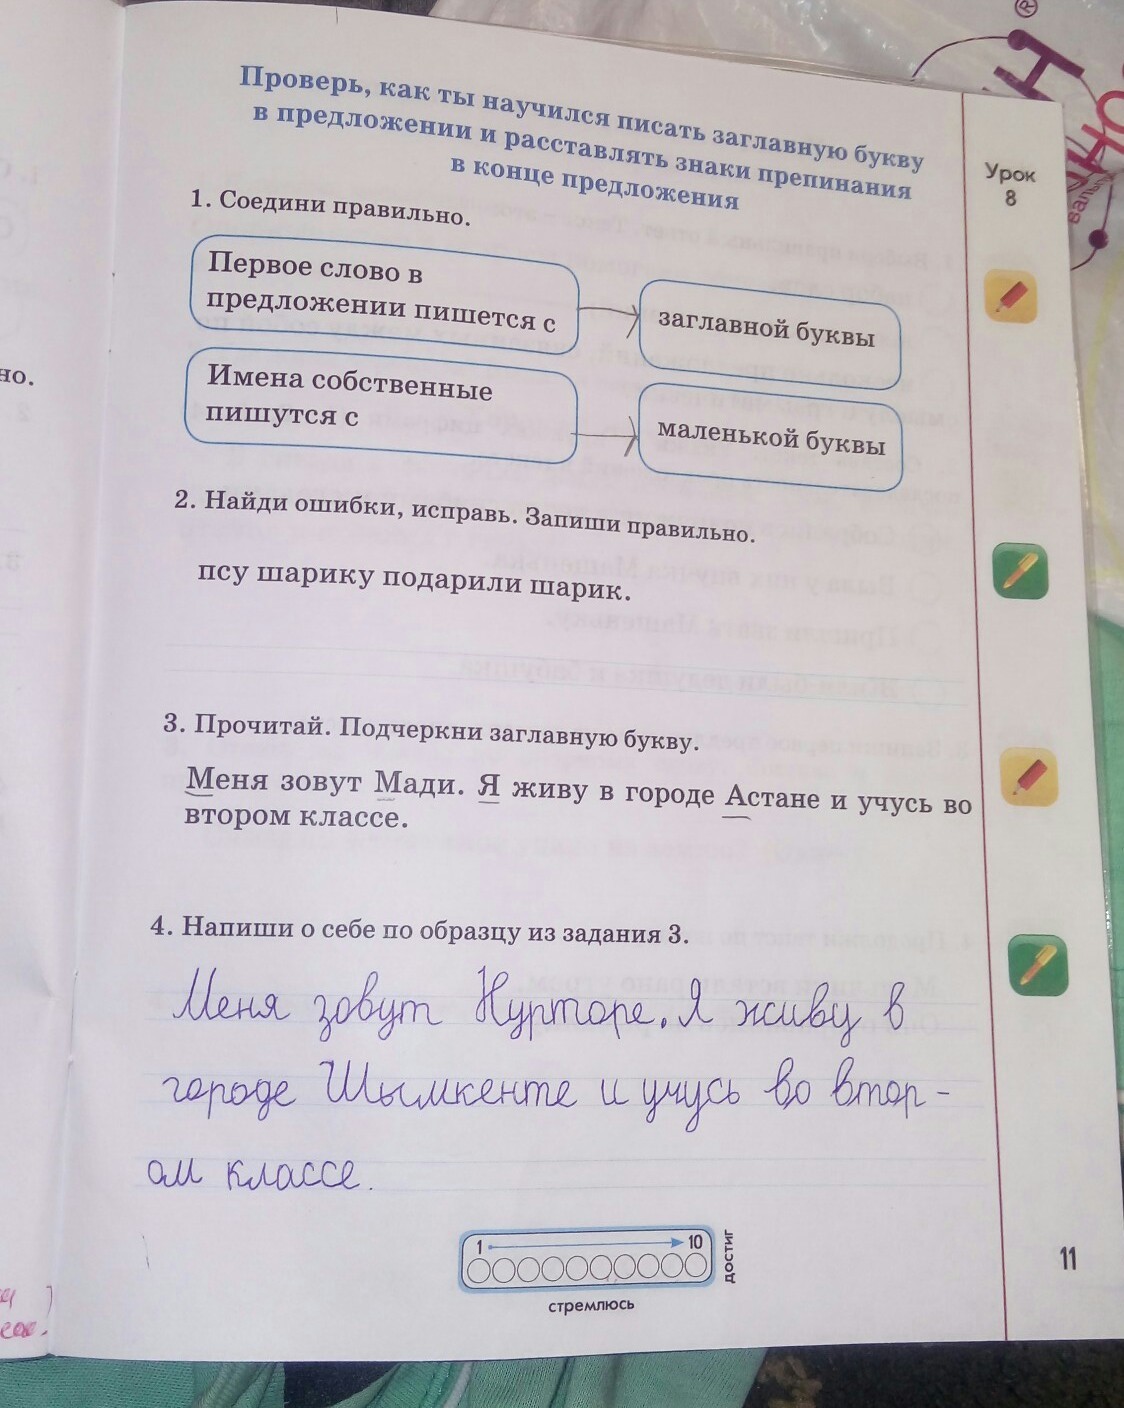 Проверь, как ты научился писать заглавную букву
в предложении и расставлять знаки препинания
в конце предложения
Урок
8
1. Соедини правильно.
Первое слово в
предложении пишется с
заглавной буквы
Имена собственные
пишутся с
маленькой буквы
но.
2. Найди ошибки, исправь. Запиши правильно.
псу шарику подарили шарик.
3. Прочитай. Подчеркни заглавную букву.
Меня зовут Мади. Я живу в городе Астане и учусь во
втором классе.
4. Напиши о себе по образцу из задания 3.
Меня зовут Нурторе. Я живу в
городе Шымкенте и учусь во втор-
ом классе.
1 10
достиг
стремлюсь
11